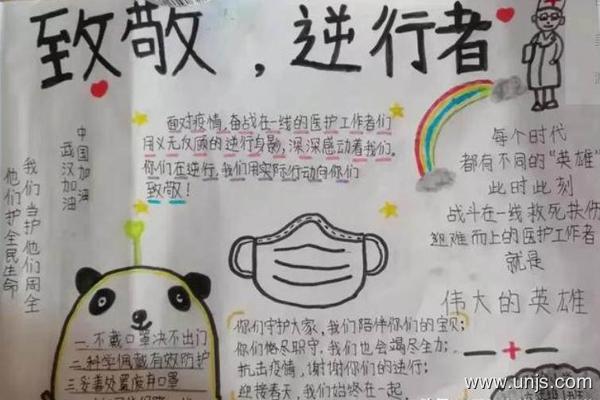 致敬，逆行者
中国加油
武汉加油
我们当护他们周全
他们护全民生命
面对疫情,奋战在一线的医护工作者们
用义无反顾的逆行身影,深深感动着我们。
你们在逆行,我们用实际行动向你们
致敬!
每个时代
都有不同的"英雄"
此时此刻
战斗在一线 救死扶伤
艰难而上的医护工作者
就是
伟大的英雄
一.不戴口罩决不出门
二.科学佩戴有效防护
三妥善处置废弃口罩
你们守护大家,我们陪伴你们的宝贝;
你们恪尽职守,我们也会竭尽全力;
抗击疫情,谢谢你们的逆行;
迎接春天,我们始终在一起
www.unjs.com